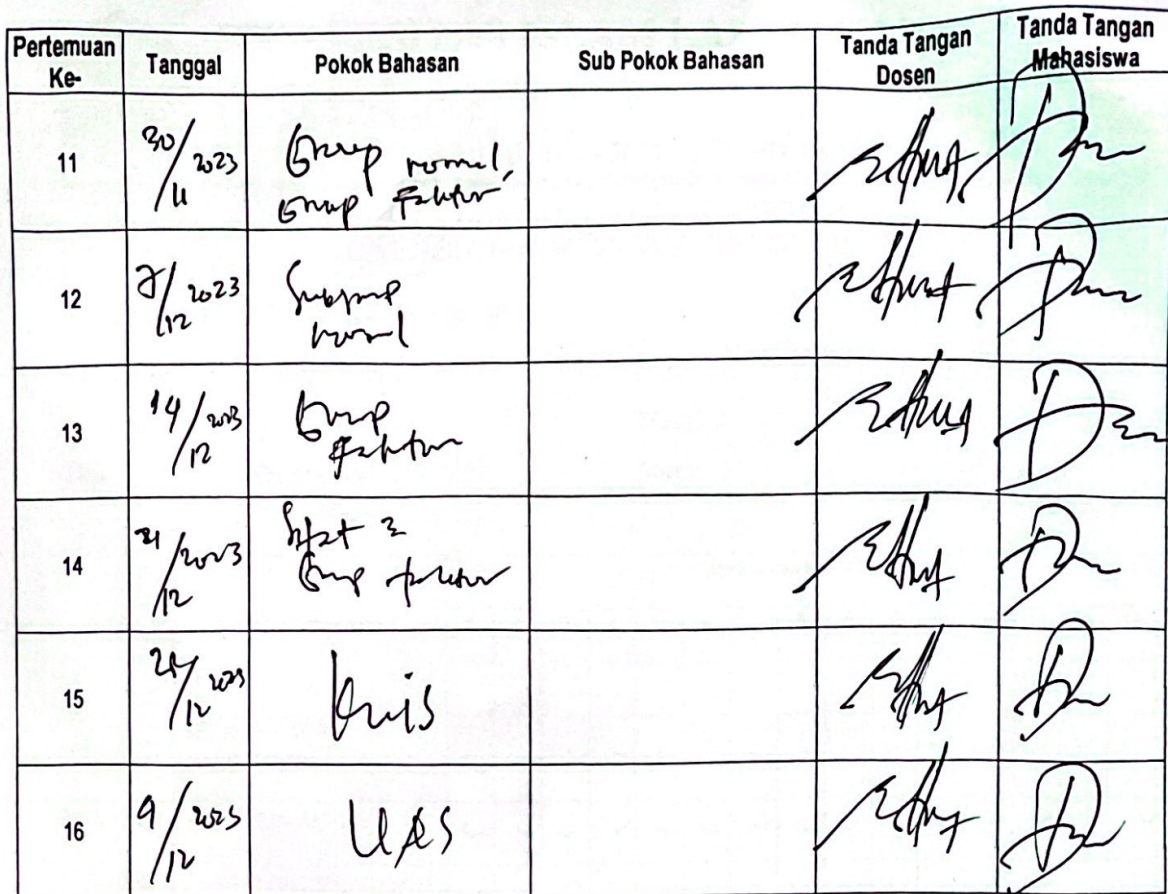 Pertemuan Ke- Tanggal Pokok Bahasan Sub Pokok Bahasan Tanda Tangan Dosen Tanda Tangan Mahasiswa
11 30/11 2023 Group normal,
Group Faktor
12 7/12 2023 Subgrup
normal
13 14/12 2023 Grup
Faktor
14 21/12 2023 Sifat 2
Grup faktor
15 /12 2023 Kuis
16 9/12 2023 UAS